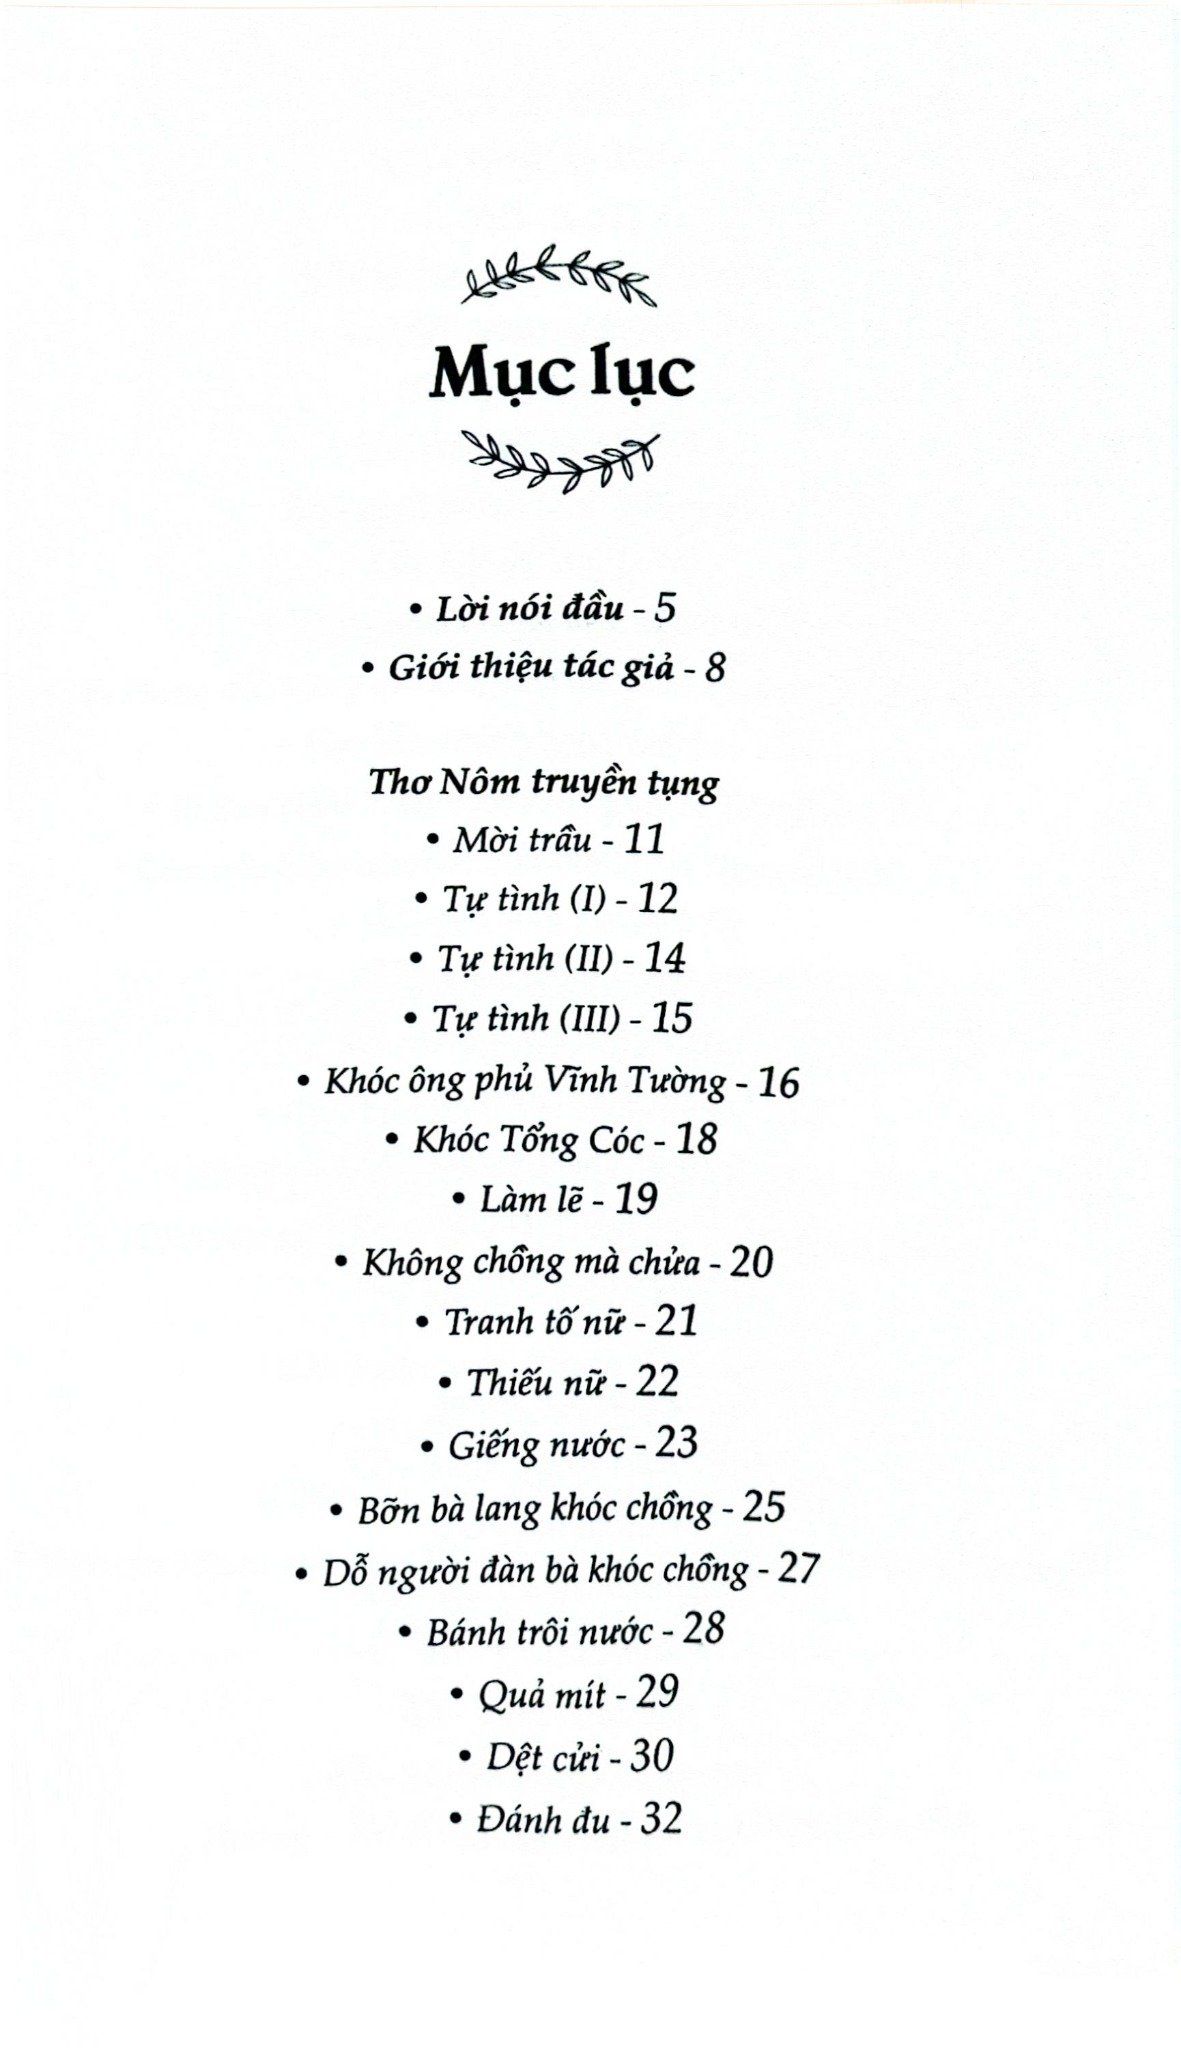 Mục lục
• Lời nói đầu - 5
• Giới thiệu tác giả - 8
Thơ Nôm truyền tụng
• Mời trầu - 11
• Tự tình (I) - 12
• Tự tình (II) - 14
• Tự tình (III) - 15
• Khóc ông phủ Vĩnh Tường - 16
• Khóc Tổng Cóc - 18
• Làm lẽ - 19
• Không chồng mà chửa - 20
• Tranh tố nữ - 21
• Thiếu nữ - 22
• Giếng nước - 23
• Bỡn bà lang khóc chồng - 25
• Dỗ người đàn bà khóc chồng - 27
• Bánh trôi nước - 28
• Quả mít - 29
• Dệt cửi - 30
• Đánh đu - 32